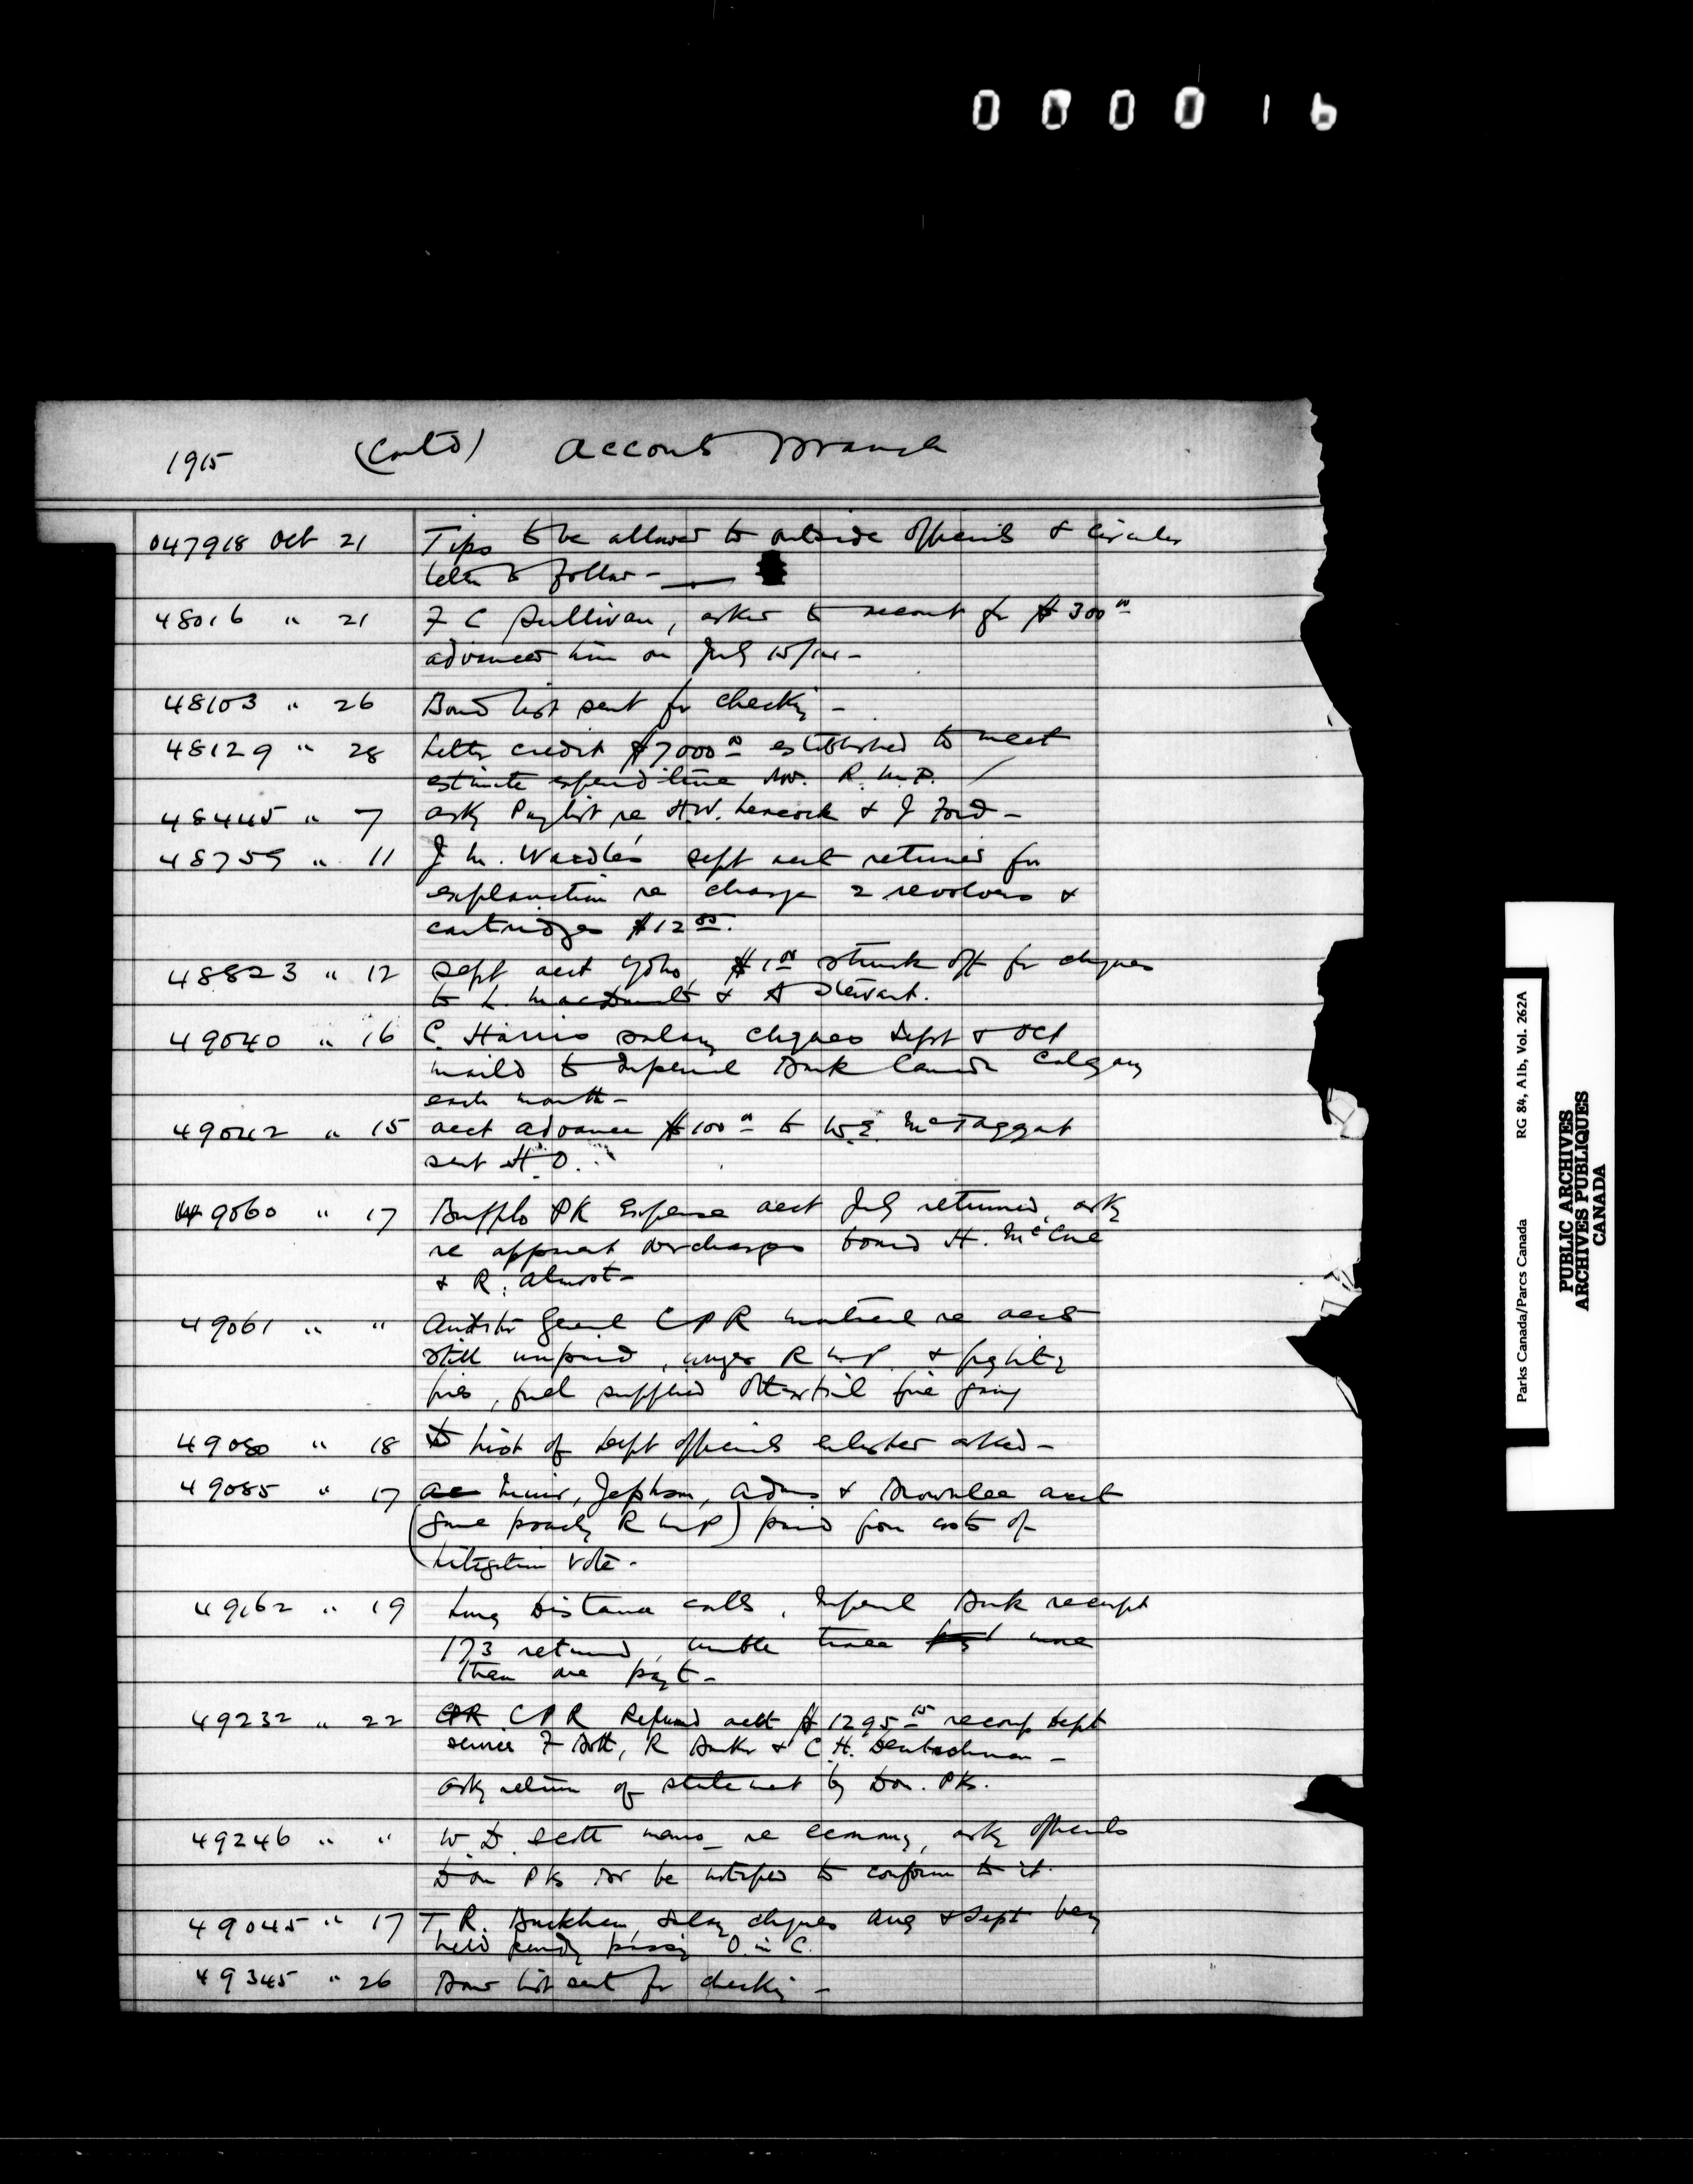 000016
1915 (Contd) Accounts Branch
047918 Oct 21 Tips to be allowed to outside officials & circular
letter to follow -
48016 " 21 F C Sullivan, asked to account for $300 00
advanced him on July 15/14 -
48103 " 26 Bond list sent for checking -
48129 " 28 Letter credit $7000 00 established to meet
estimate expenditure R. M. P.
48445 " 7 ask Paylist re H.W. Leacock & J Ford -
48759 " 11 J. M. Wardle's Sept acct returned for
explanation re charge 2 revolvers &
cartridges $12 85.
48823 " 12 Sept acct Yoho, $1 00 struck off for cheques
to L. MacDonald & A Stewart.
49040 " 16 C. Harris salary cheques Sept & Oct
mailed to Imperial Bank Canada Calgary
each month -
49042 " 15 acct advance $100 00 to W.E. McTaggart
sent H.O.
49060 " 17 Buffalo Pk Expense acct July returned, ask
re apparent overcharges board H. McCue
& R. Almost -
49061 " " Auditor General CPR material re accts
still unpaid, wages R M P. & fighting
fires, fuel supplied Ottertail fire gang
49080 " 18 List of Dept officials enlisted asked -
49085 " 17 Muir, Jephson, Adams & Brownlee acct
(Game poaching R M P) paid from costs of
Litigation vote -
49162 " 19 Long Distance calls, Imperial Bank receipt
173 returned, unable trace more
than one payt -
49232 " 22 CPR CPR Refund acct $1295 15 recoup Dept
services F Bott, R Barker & C.H. Deutschman -
ask return of statement by Dom. Pks.
49246 " " W D. Scott memo re economy, ask officials
Dom Pks Br be notified to conform to it.
49045 " 17 T. R. Buckham, Salary cheques Aug & Sept being
held pending passing O. in C.
49345 " 26 Bond list sent for checking -
Parks Canada/Parcs Canada RG 84, A1b, Vol. 262A
PUBLIC ARCHIVES
ARCHIVES PUBLIQUES
CANADA